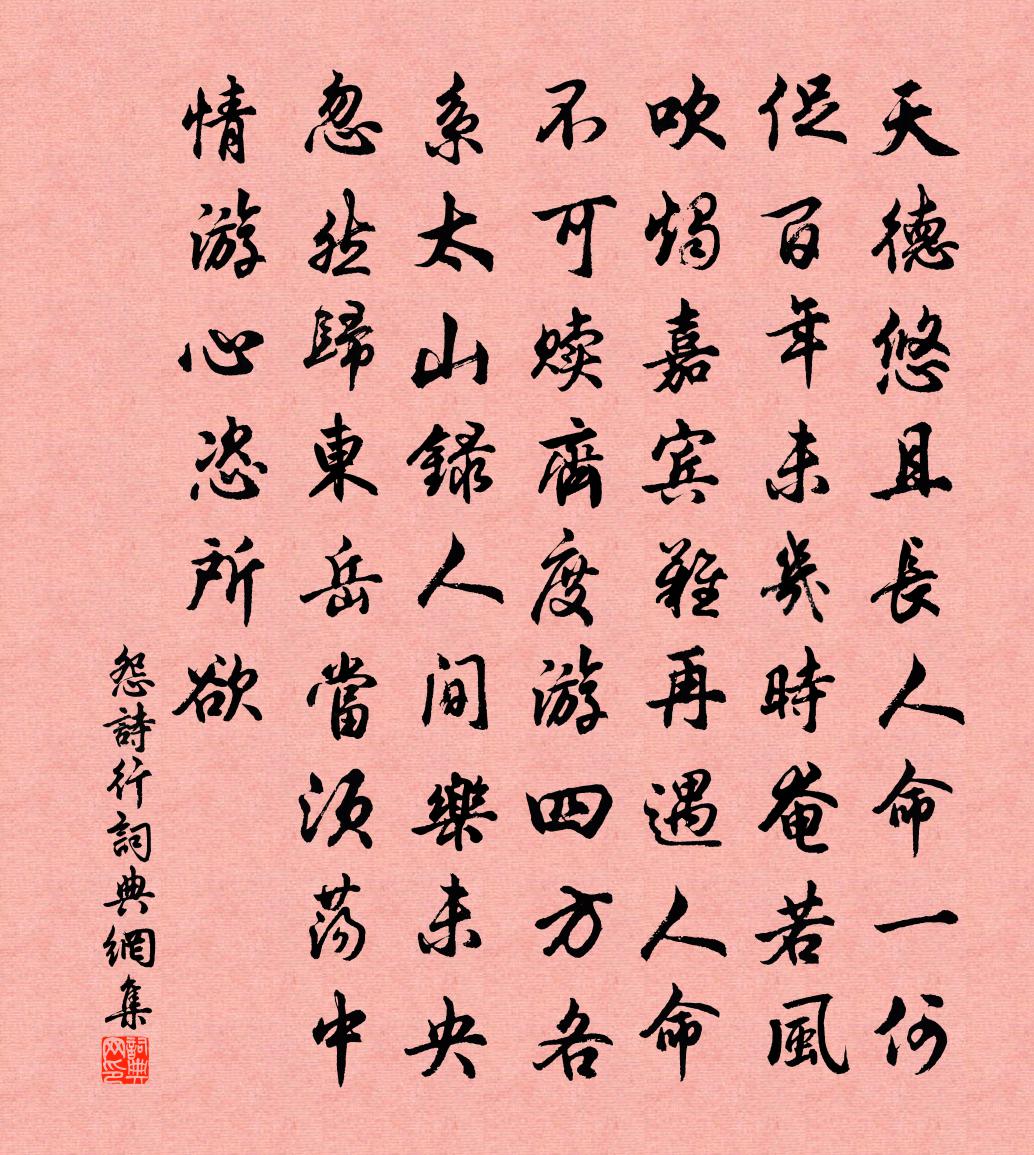 天德悠且長人命一何
促百年未幾時奄若風
吹燭嘉宾難再遇人命
不可赎齊度游四方各
系太山録人间樂未央
忽然歸東岳當須荡中
情游心恣所欲
怨詩行詞典網集
詞典网印